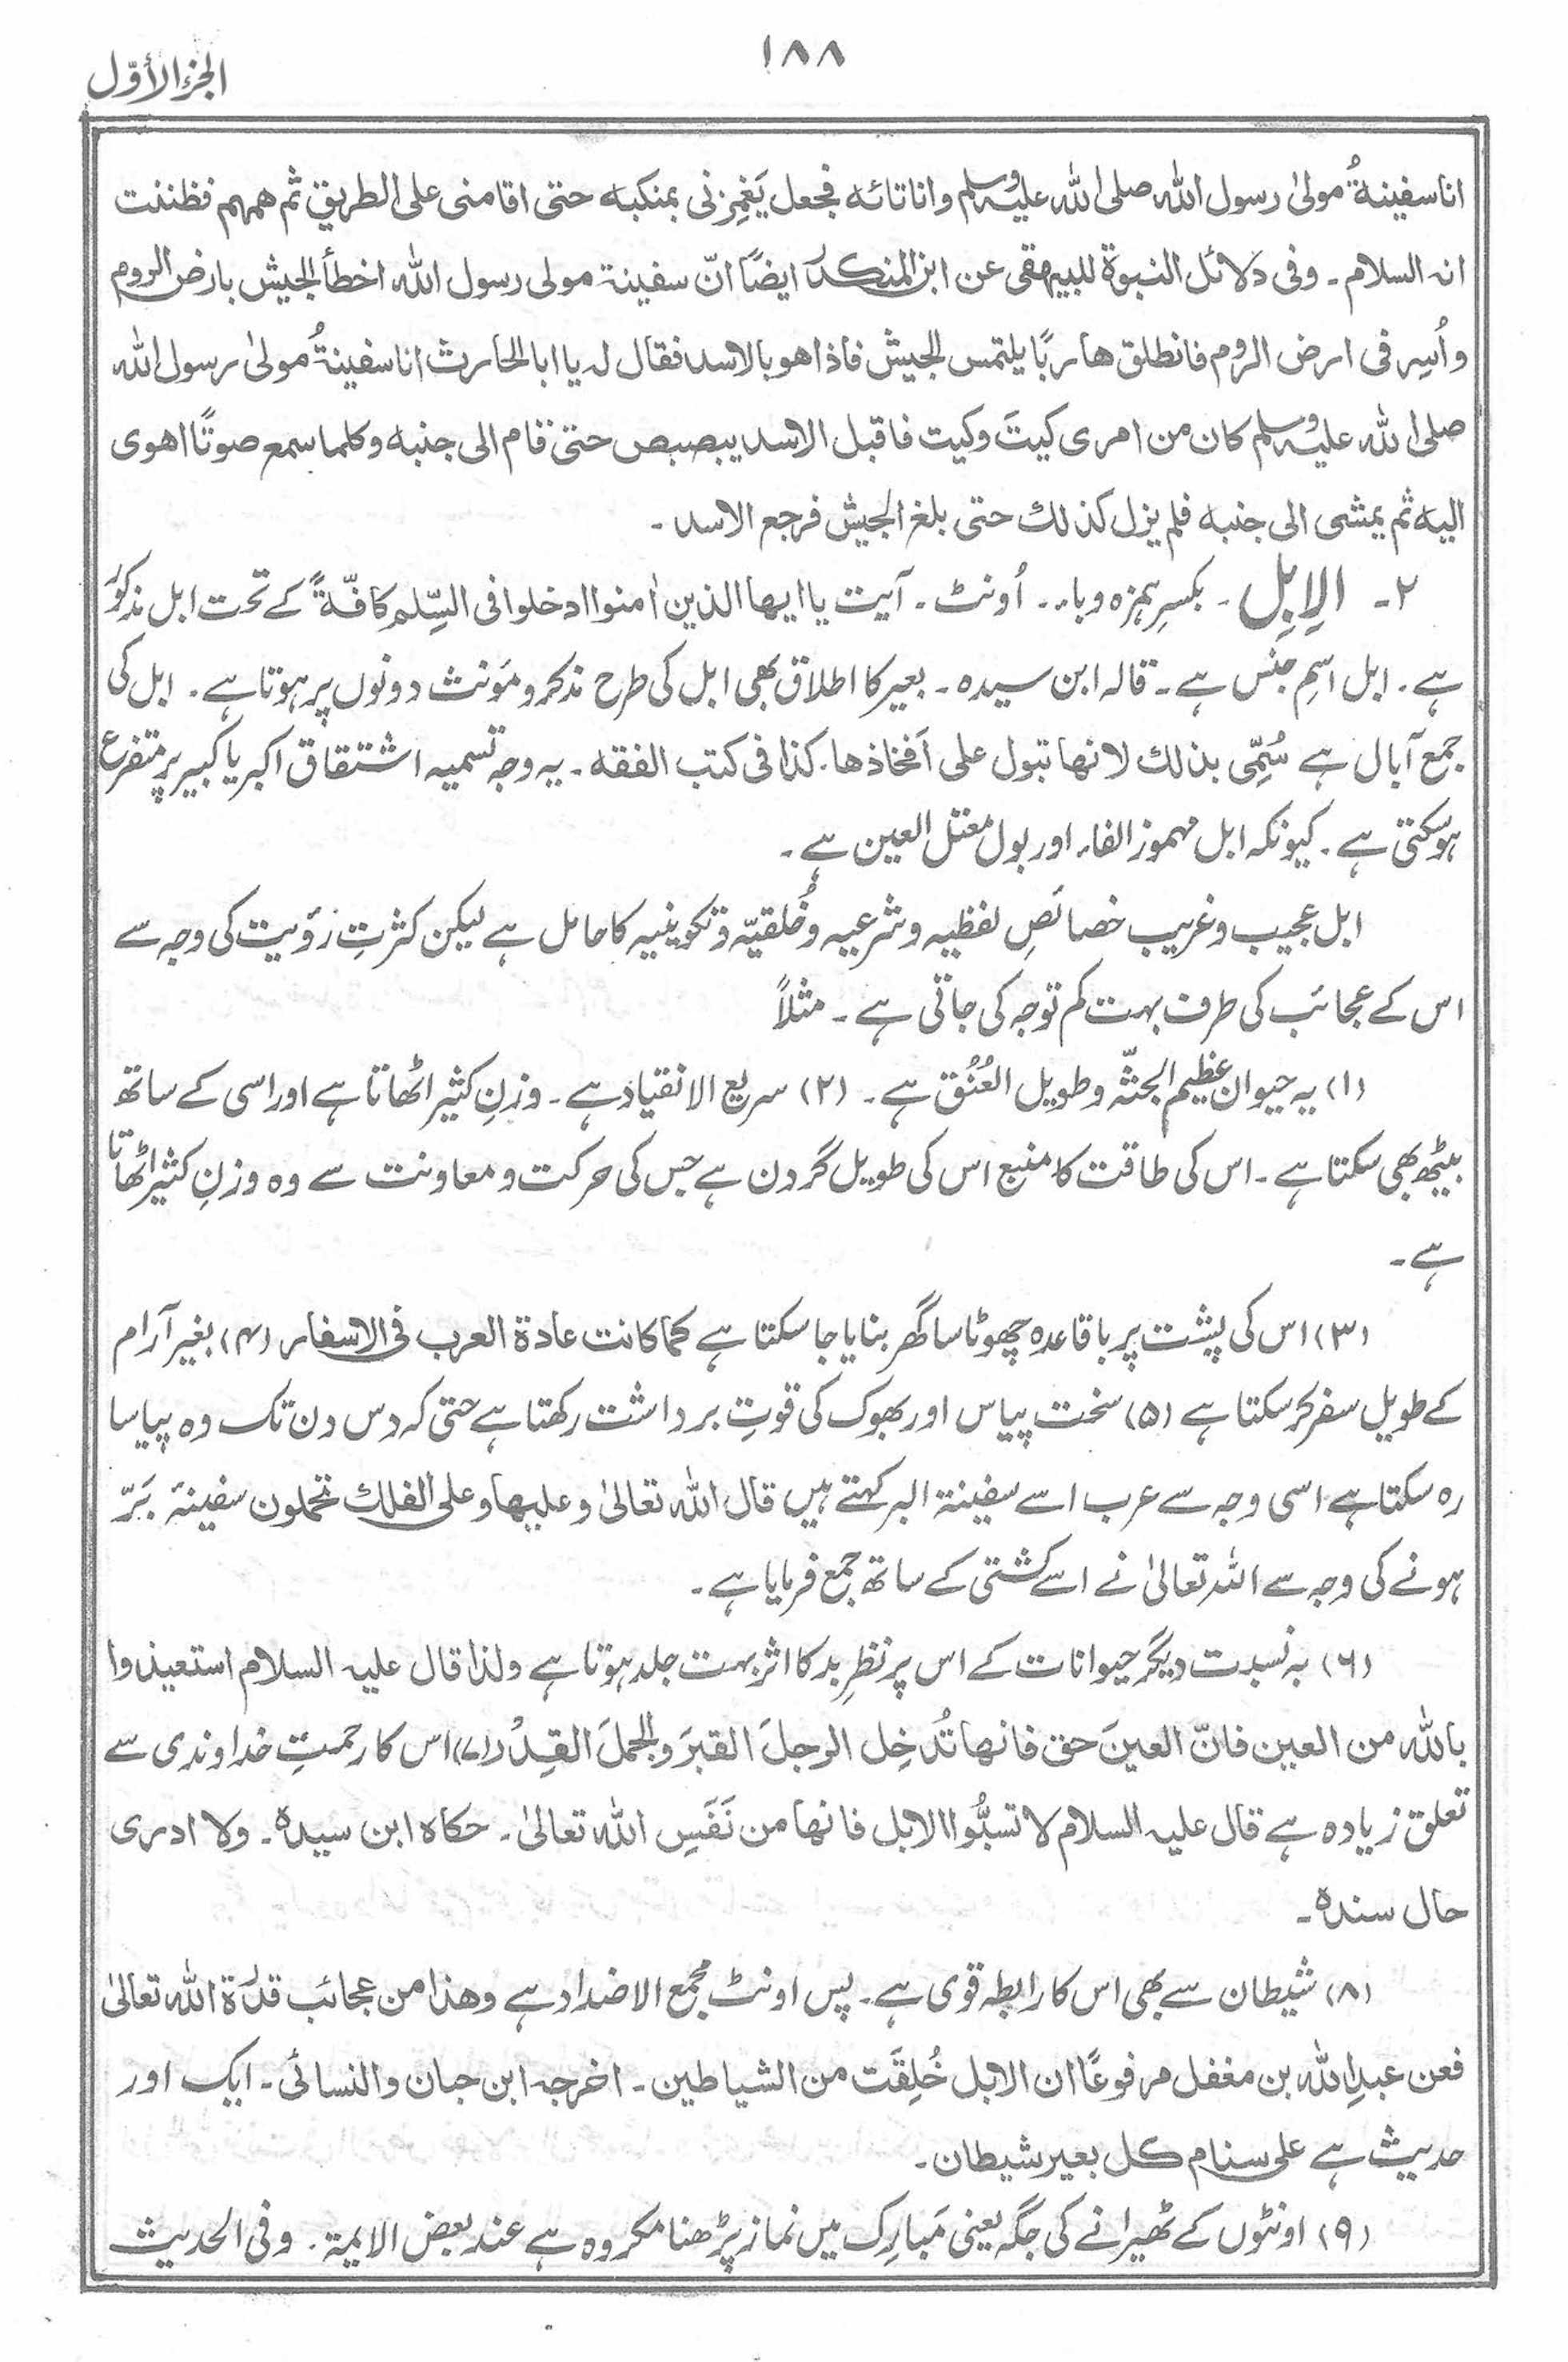 ١٨٨
الجزء الأوّل
انا سفینةُ مولیٰ رسول اللہ صلی اللہ علیہ وسلم وانا تائه فجعل یَغمِزنی بمنکبه حتی اقامنی علی الطریق ثم همهم فظننت
انه السلام۔ وفی دلائل النبوة للبیهقی عن ابن المنکدر ایضًا انّ سفینة مولی رسول الله اخطأ الجیش بارض الروم
و اُسِر فی ارض الروم فانطلق هاربًا یلتمس الجیش فاذا هو بالاسد فقال له یا ابا الحارث انا سفینةُ مولیٰ رسول الله
صلی اللہ علیہ وسلم کان من امری کیتَ وکیت فاقبل الاسد یبصبص حتیٰ قام الی جنبه وکلما سمع صوتًا اهوی
الیه ثم یمشی الی جنبه فلم یزل کذلك حتی بلغ الجیش فرجع الاسد۔
۲۔ الإبِل۔ بکسرِ ہمزہ و باء۔ اُونٹ۔ آیت یا ایها الذین اٰمنوا ادخلوا فی السِّلم کافّةً کے تحت ابل مذکور
ہے۔ ابل اسمِ جنس ہے۔ قاله ابن سیدہ۔ بعیر کا اطلاق بھی ابل کی طرح مذکر و مؤنث دونوں پر ہوتا ہے۔ ابل کی
جمع آبال ہے سُمِّی بذلك لانها تبول علی اَفخاذها۔ کذا فی کتب الفقه۔ یہ وجہ تسمیہ اشتقاق اکبر یا کبیر پر متفرع
ہوسکتی ہے۔ کیونکہ ابل مہموز الفاء اور بول معتل العین ہے۔
ابل عجیب و غریب خصائصِ لفظیہ و شرعیہ و خُلقیّہ و تکوینیہ کا حامل ہے لیکن کثرتِ رؤیت کی وجہ سے
اس کے عجائب کی طرف بہت کم توجہ کی جاتی ہے۔ مثلاً
(۱) یہ حیوان عظیم الجثّہ و طویل العُنُق ہے۔ (۲) سریع الانقیاد ہے۔ وزنِ کثیر اٹھاتا ہے اور اسی کے ساتھ
بیٹھ بھی سکتا ہے۔ اس کی طاقت کا منبع اس کی طویل گردن ہے جس کی حرکت و معاونت سے وہ وزنِ کثیر اٹھاتا
ہے۔
(۳) اس کی پشت پر باقاعدہ چھوٹا سا گھر بنایا جا سکتا ہے کما کانت عادة العرب فی الاسفار (۴) بغیر آرام
کے طویل سفر کر سکتا ہے (۵) سخت پیاس اور بھوک کی قوتِ برداشت رکھتا ہے حتی کہ دس دن تک وہ پیاسا
رہ سکتا ہے اسی وجہ سے عرب اسے سفینة البر کہتے ہیں قال الله تعالیٰ وعلیها وعلی الفلك تحملون سفینۂ بَرّ
ہونے کی وجہ سے اللہ تعالیٰ نے اسے کشتی کے ساتھ جمع فرمایا ہے۔
(۶) بہ نسبت دیگر حیوانات کے اس پر نظرِ بد کا اثر بہت جلد ہوتا ہے ولذا قال علیہ السلام استعیذوا
بالله من العین فانّ العینَ حق فانها تُدخِل الرجلَ القبرَ والجملَ القِدْر (۷) اس کا رحمتِ خداوندی سے
تعلق زیادہ ہے قال علیہ السلام لا تسبُّوا الابل فانها من نَفَسِ الله تعالیٰ۔ حکاہ ابن سیدہ۔ ولا ادری
حال سندہ۔
(۸) شیطان سے بھی اس کا رابطہ قوی ہے۔ پس اونٹ مجمع الاضداد ہے وهذا من عجائب قدرة الله تعالیٰ
فعن عبدِ الله بن مغفل مرفوعًا ان الابل خُلِقَت من الشیاطین۔ اخرجه ابن حبان والنسائی۔ ایک اور
حدیث ہے علی سنام کل بعیر شیطان۔
(۹) اونٹوں کے ٹھیرانے کی جگہ یعنی مَبارِک میں نماز پڑھنا مکروہ ہے عند بعض الایمة۔ وفی الحدیث